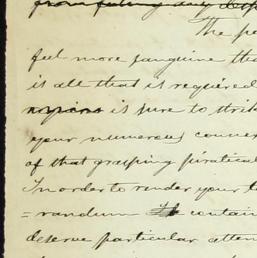 from f
The pe
feel more sanguine tha
is all that is required
is sure to strik
your numerous connex
of that grasping piratical
In order to render your l
= randum contain
deserve particular atten